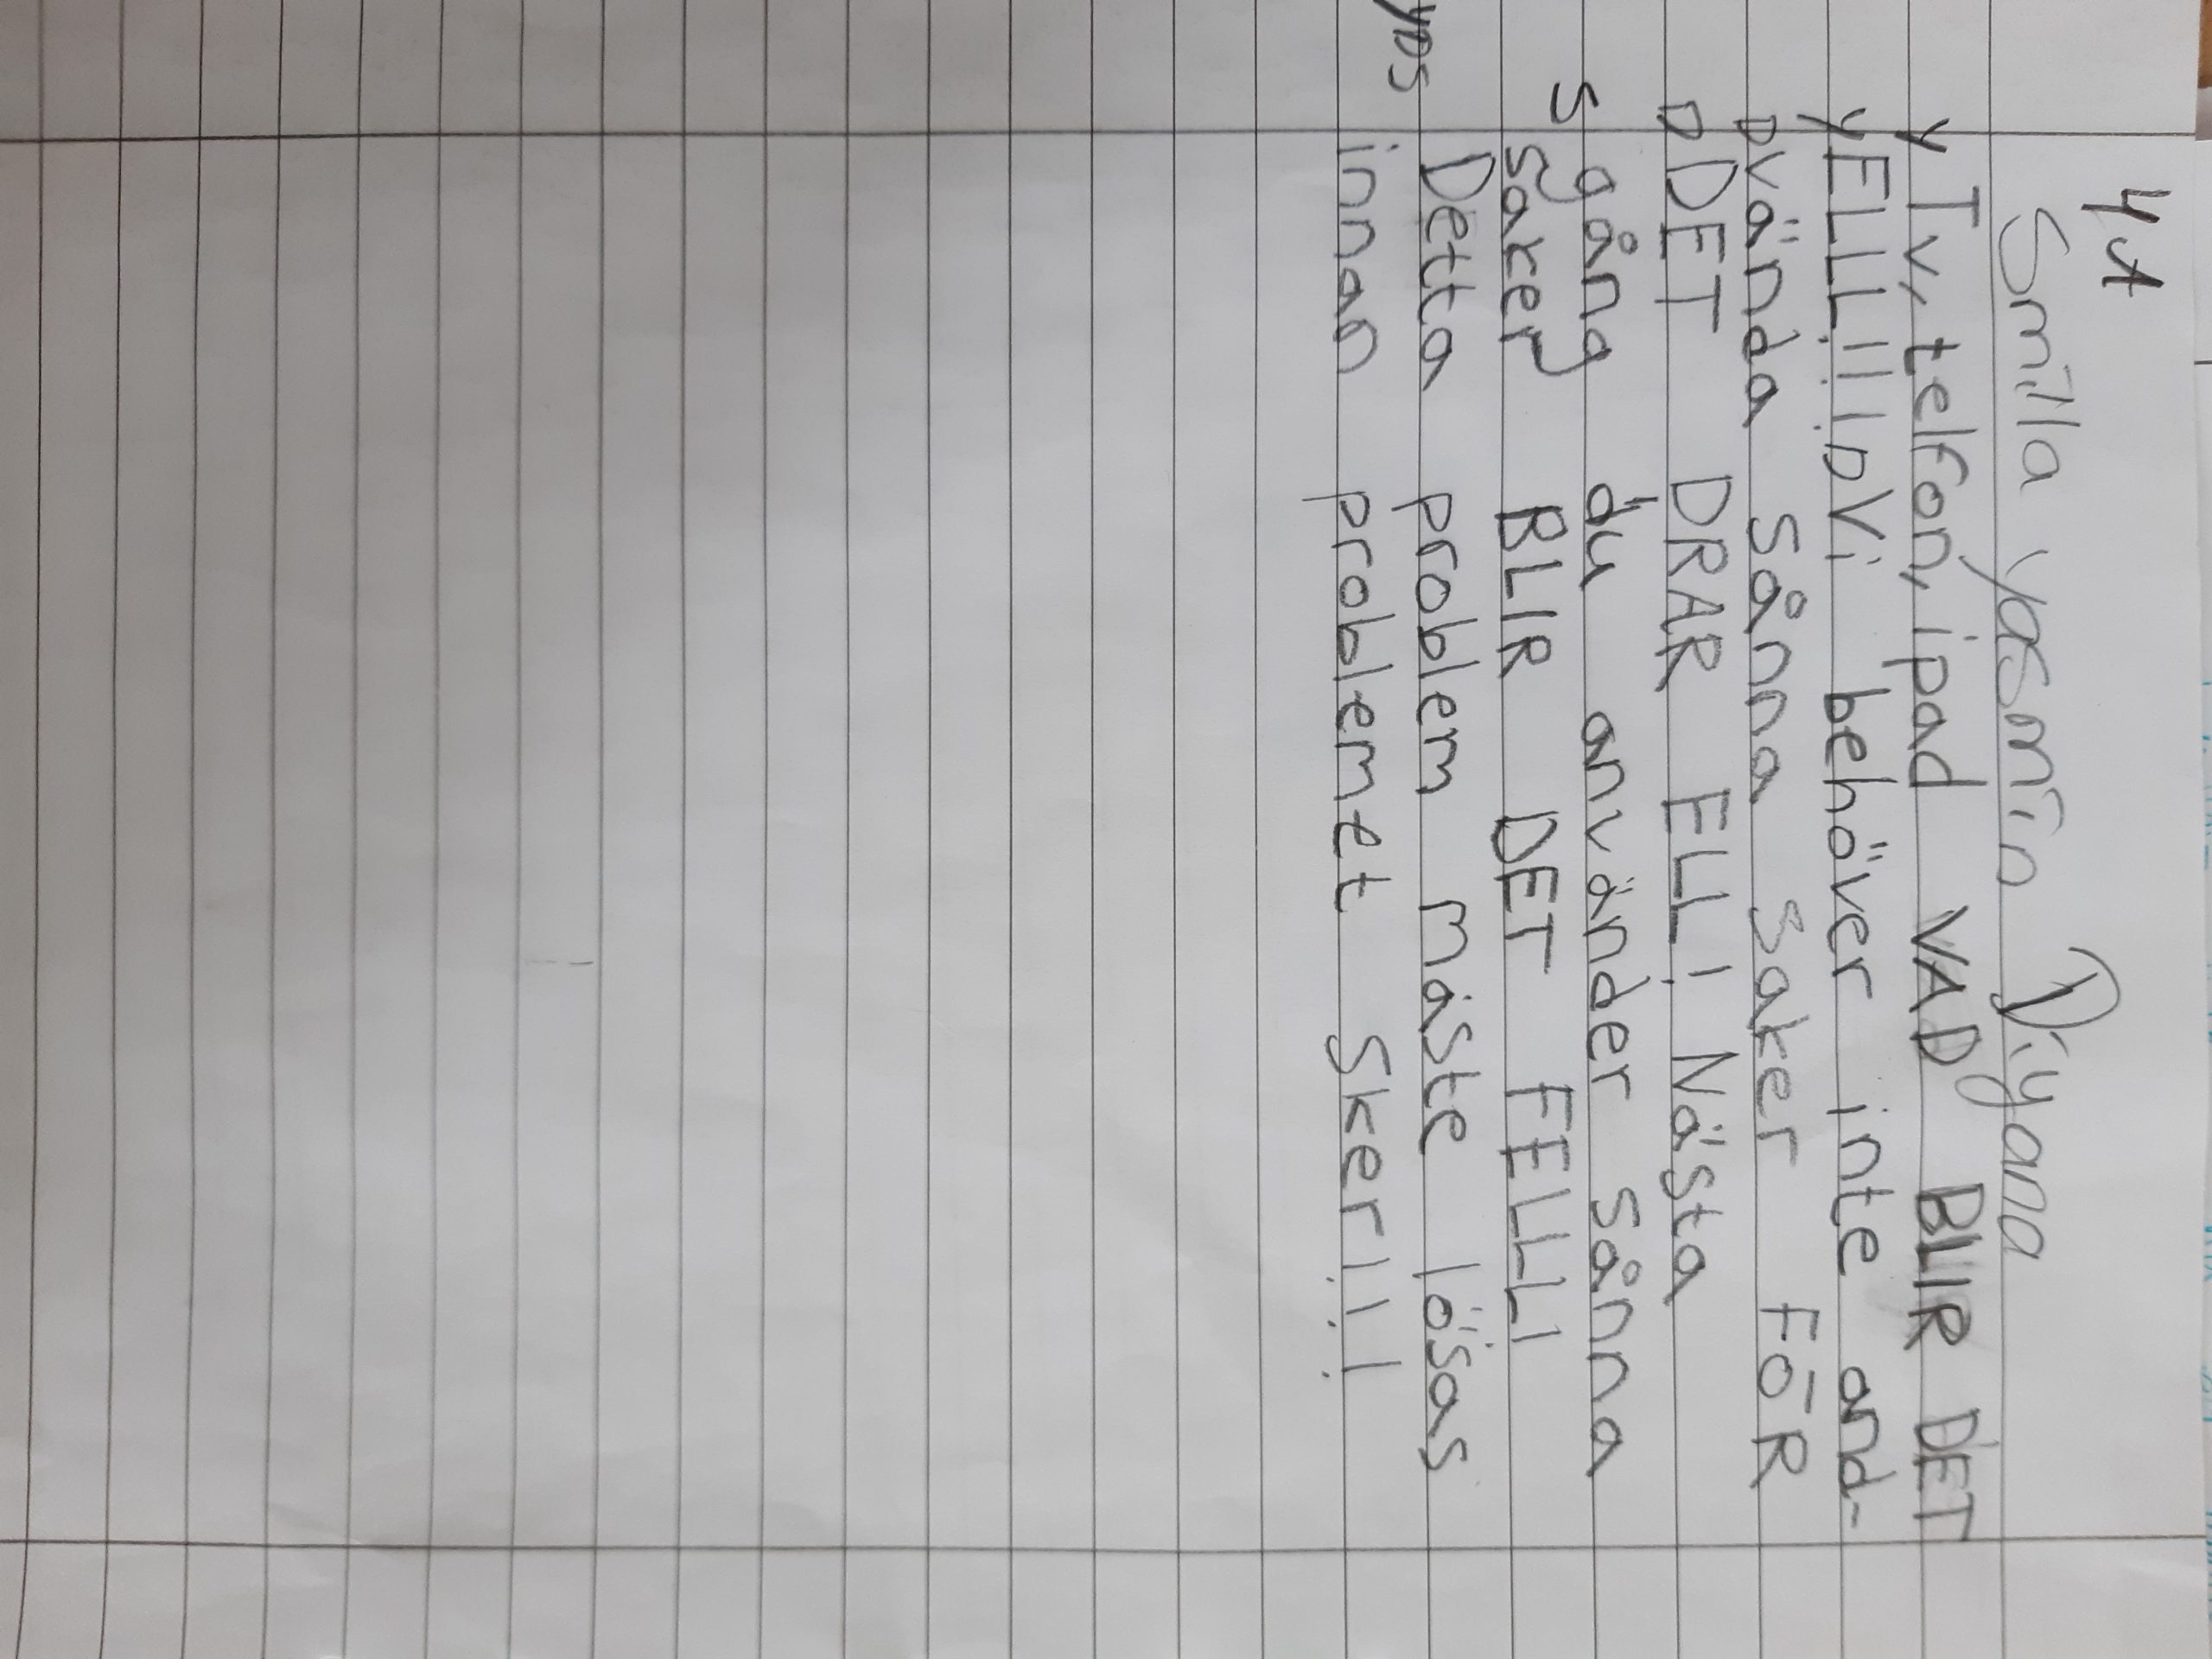 4A
Smilla Yasmin Diyana
y Tv, telfon, ipad VAD BLIR DET
y ELLL!!!! DVi behöver inte and-
D vända sånna saker FÖR
D DET DRAR ELL! Nästa
S gång du använder sånna
saker BLIR DET FELLL!
Detta problem måste lösas
yDS innan problemet sker!!!!